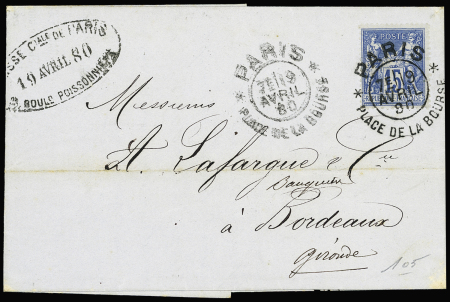 SSE C^ALE DE PARIS
19 AVRIL 80
BOULD POISSONNIÈRE
* PARIS *
E19
AVRIL
80
PLACE DE LA BOURSE
POSTE
15
* PARIS *
E19
AVRIL
80
PLACE DE LA BOURSE
Messieurs
A. Lafargue & Cie
Banquiers
à Bordeaux
Gironde
105